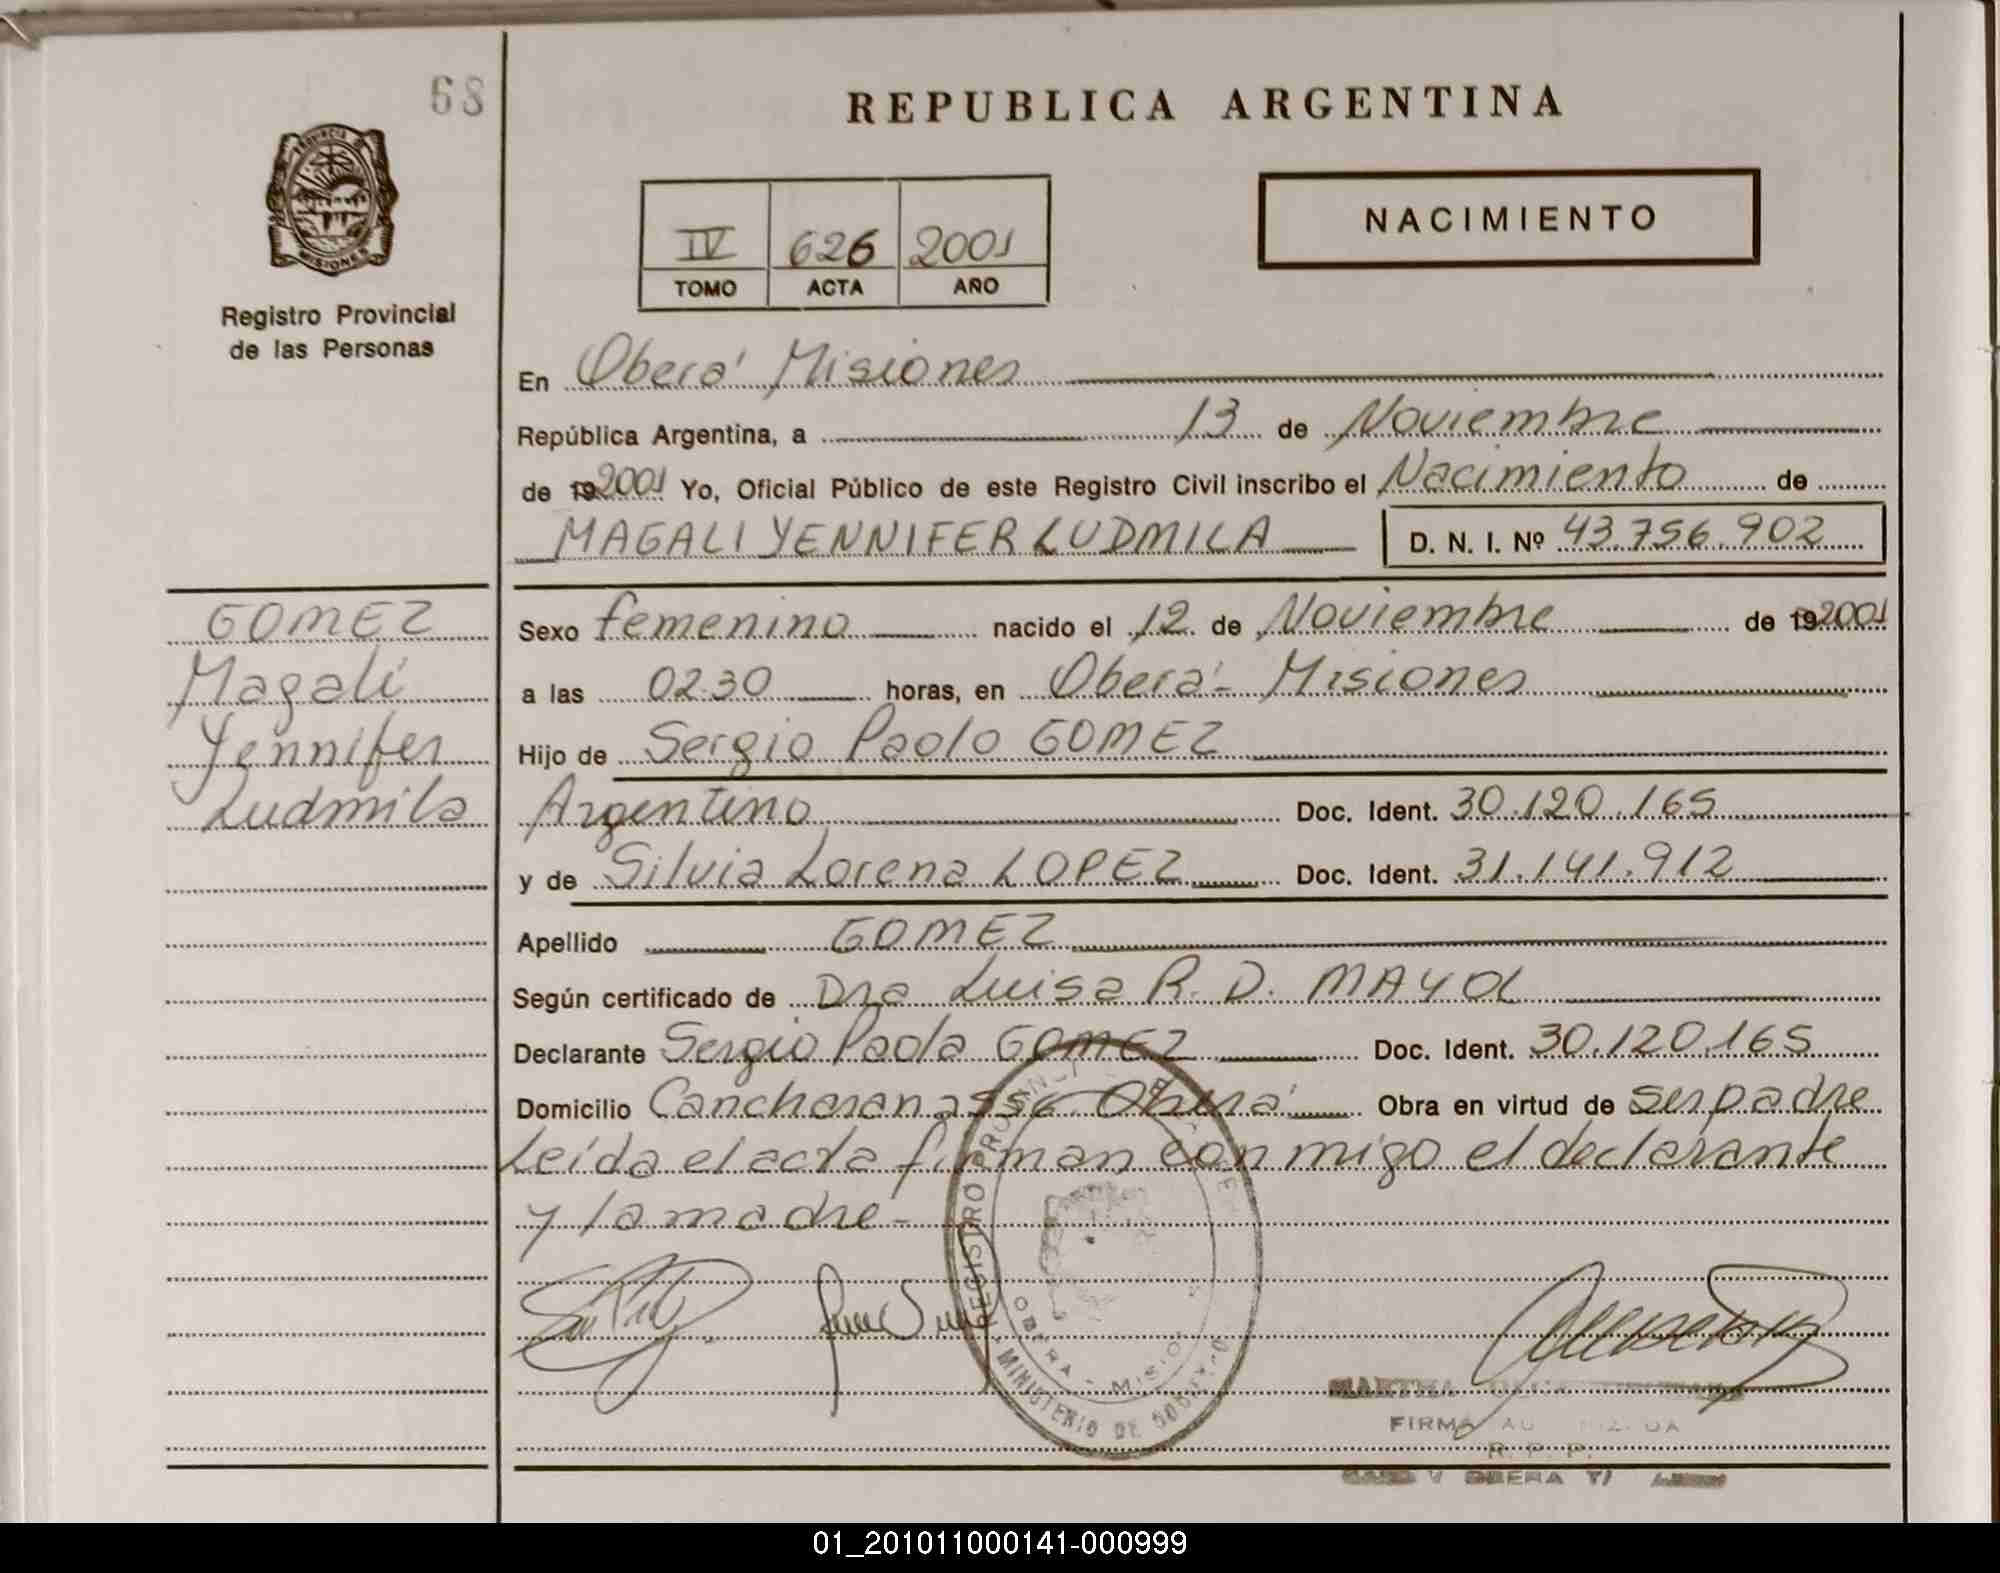 68
PROVINCIA D
MISIONES
Registro Provincial
de las Personas
REPUBLICA ARGENTINA
NACIMIENTO
IV 626 2001
TOMO ACTA AÑO
En Oberá Misiones
República Argentina, a 13 de Noviembre
de 19 2001 Yo, Oficial Público de este Registro Civil inscribo el Nacimiento de
MAGALI YENNIFER LUDMILA D. N. I. Nº 43.756.902
GOMEZ
Magalí
Yennifer
Ludmila
Sexo femenino nacido el 12 de Noviembre de 19 2001
a las 02:30 horas, en Oberá - Misiones
Hijo de Sergio Paolo GOMEZ
Argentino Doc. Ident. 30.120.165
y de Silvia Lorena LOPEZ Doc. Ident. 31.141.912
Apellido GOMEZ
Según certificado de Dra Luisa R. D. MAYOL
Declarante Sergio Paolo GOMEZ Doc. Ident. 30.120.165
Domicilio Oberá Obra en virtud de ser padre
Leída el acta firman conmigo el declarante
y la madre -
REGISTRO
OBERA - MISIO
MINISTERIO DE GOBIERNO
MARTHA
FIRMA
R. P. P.
OBERA
01_201011000141-000999